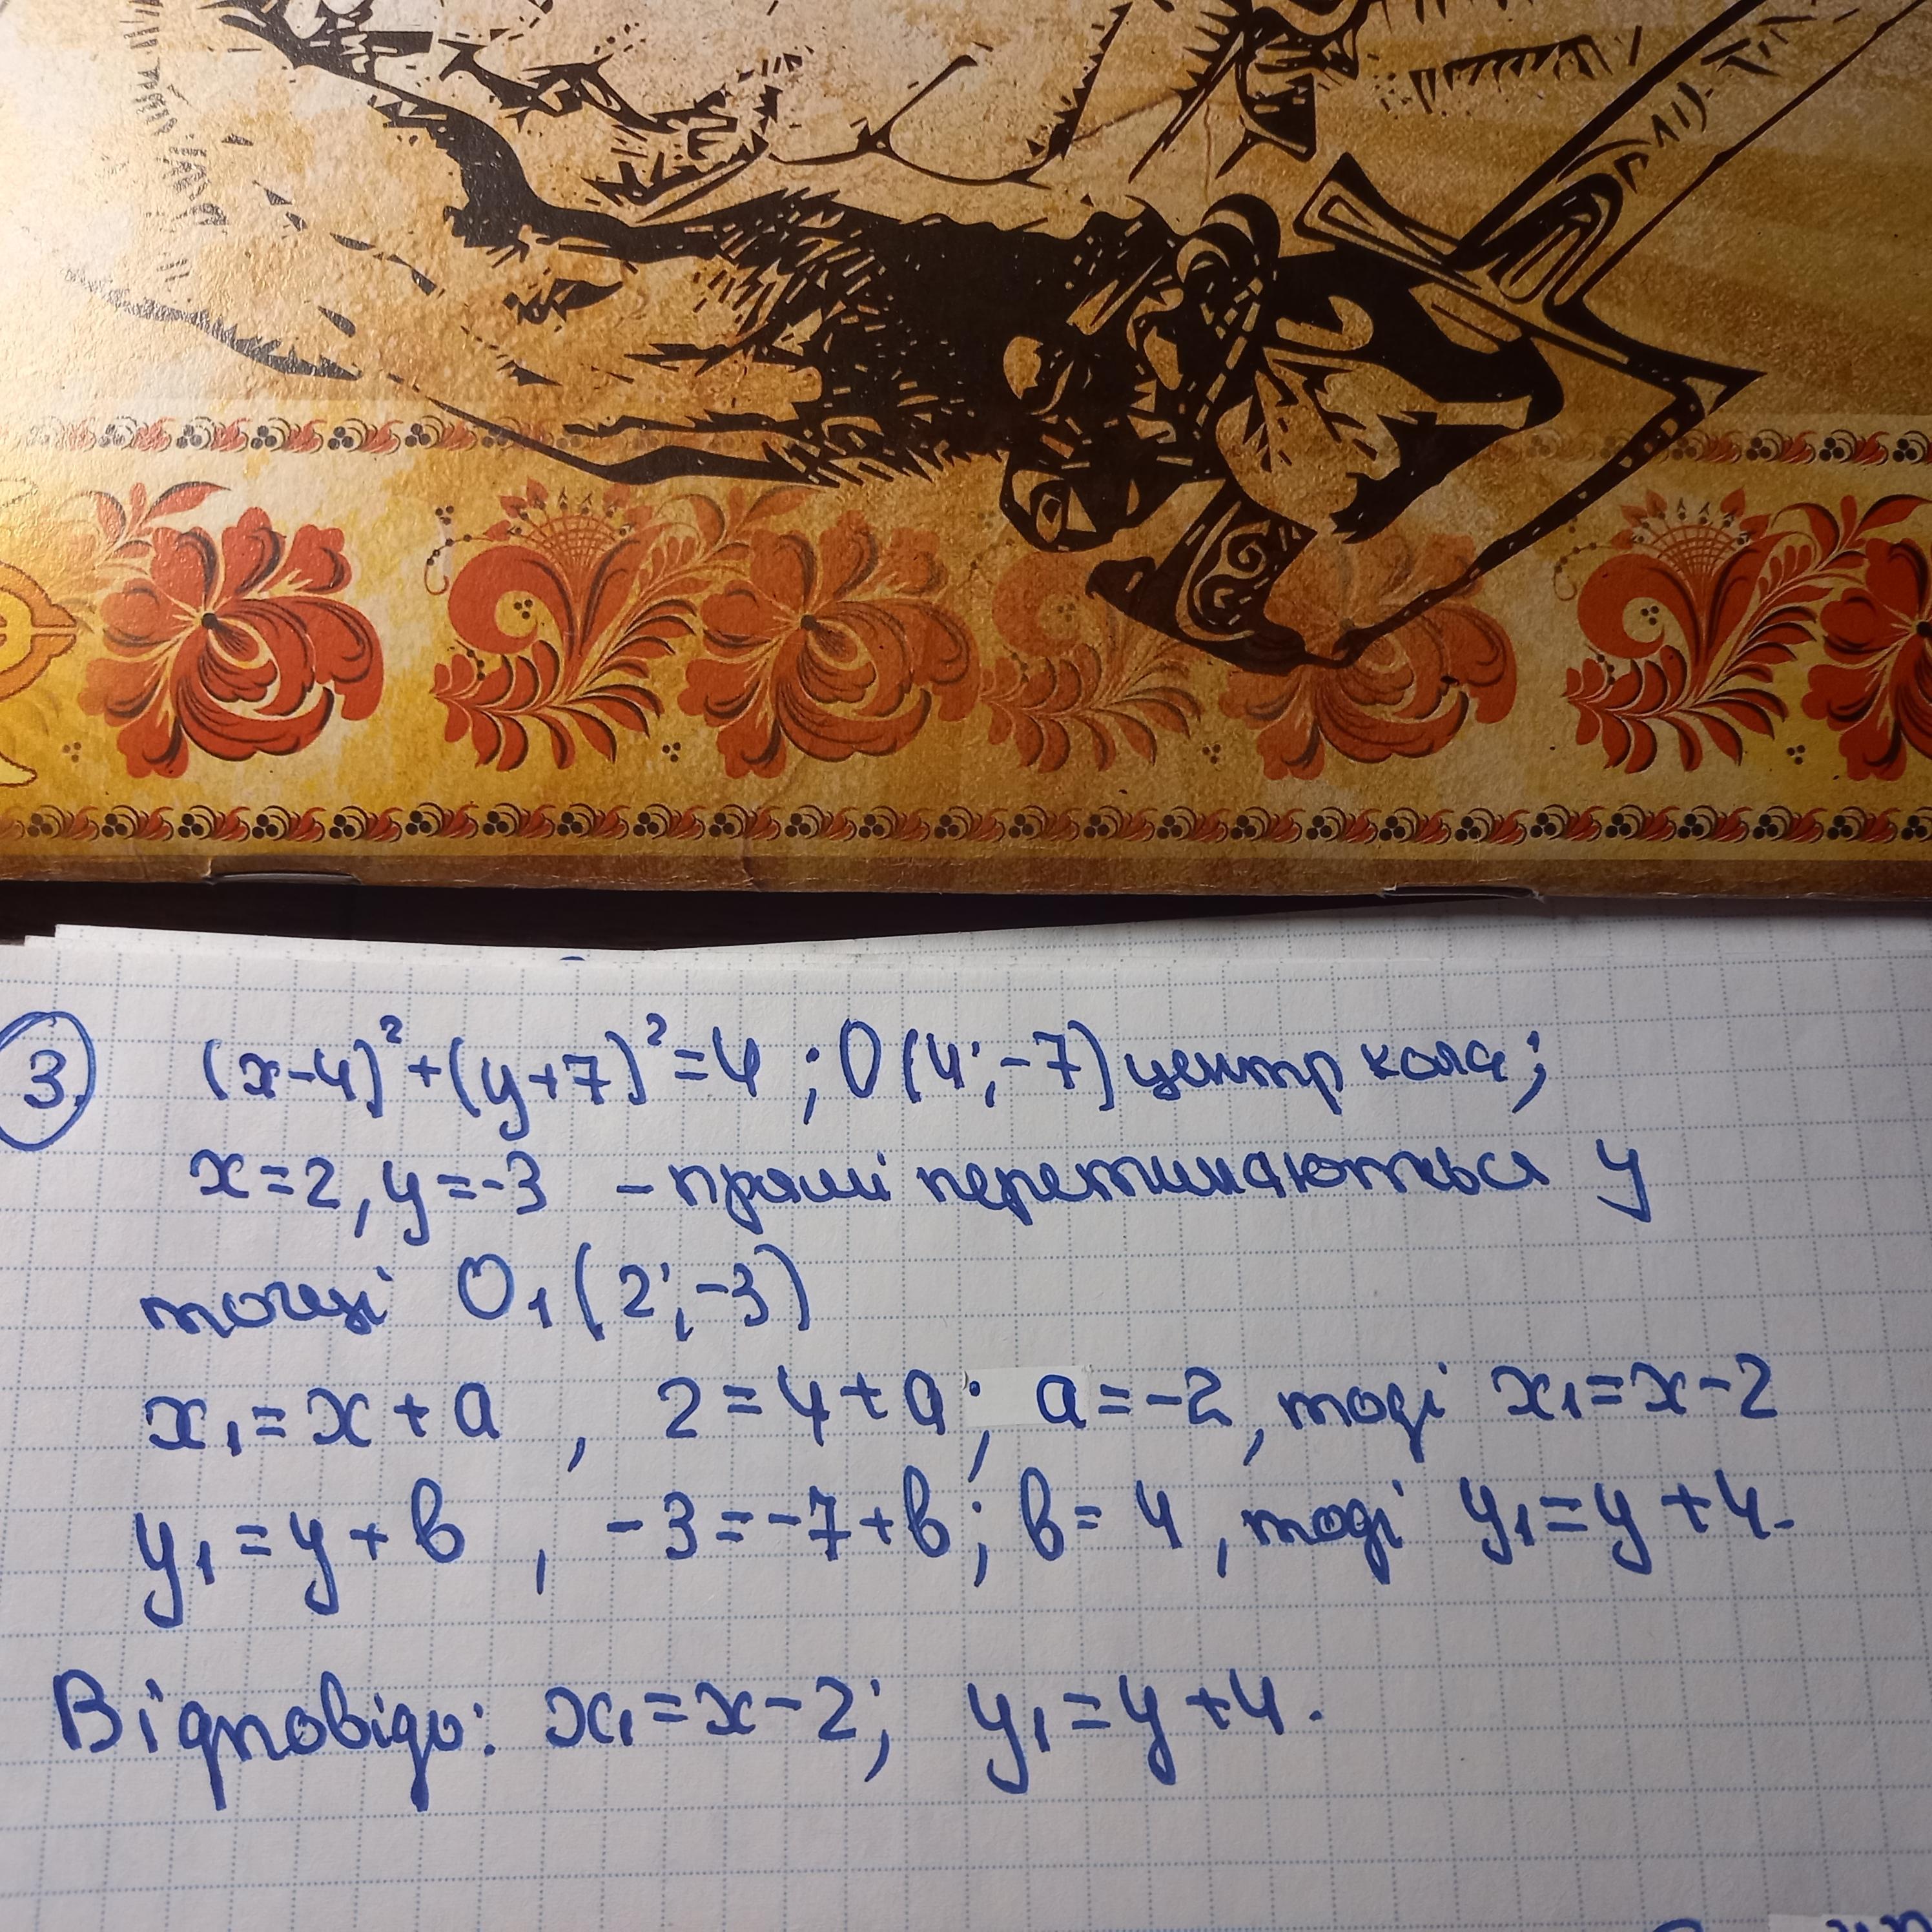 3. (x-4)²+(y+7)²=4 ; O(4;-7) центр кола;
x=2, y=-3 - прямі перетинаються у
точці O₁(2;-3)
x₁=x+a , 2=4+a; a=-2, тоді x₁=x-2
y₁=y+в , -3=-7+в; в=4, тоді y₁=y+4.
Відповідь: x₁=x-2; y₁=y+4.